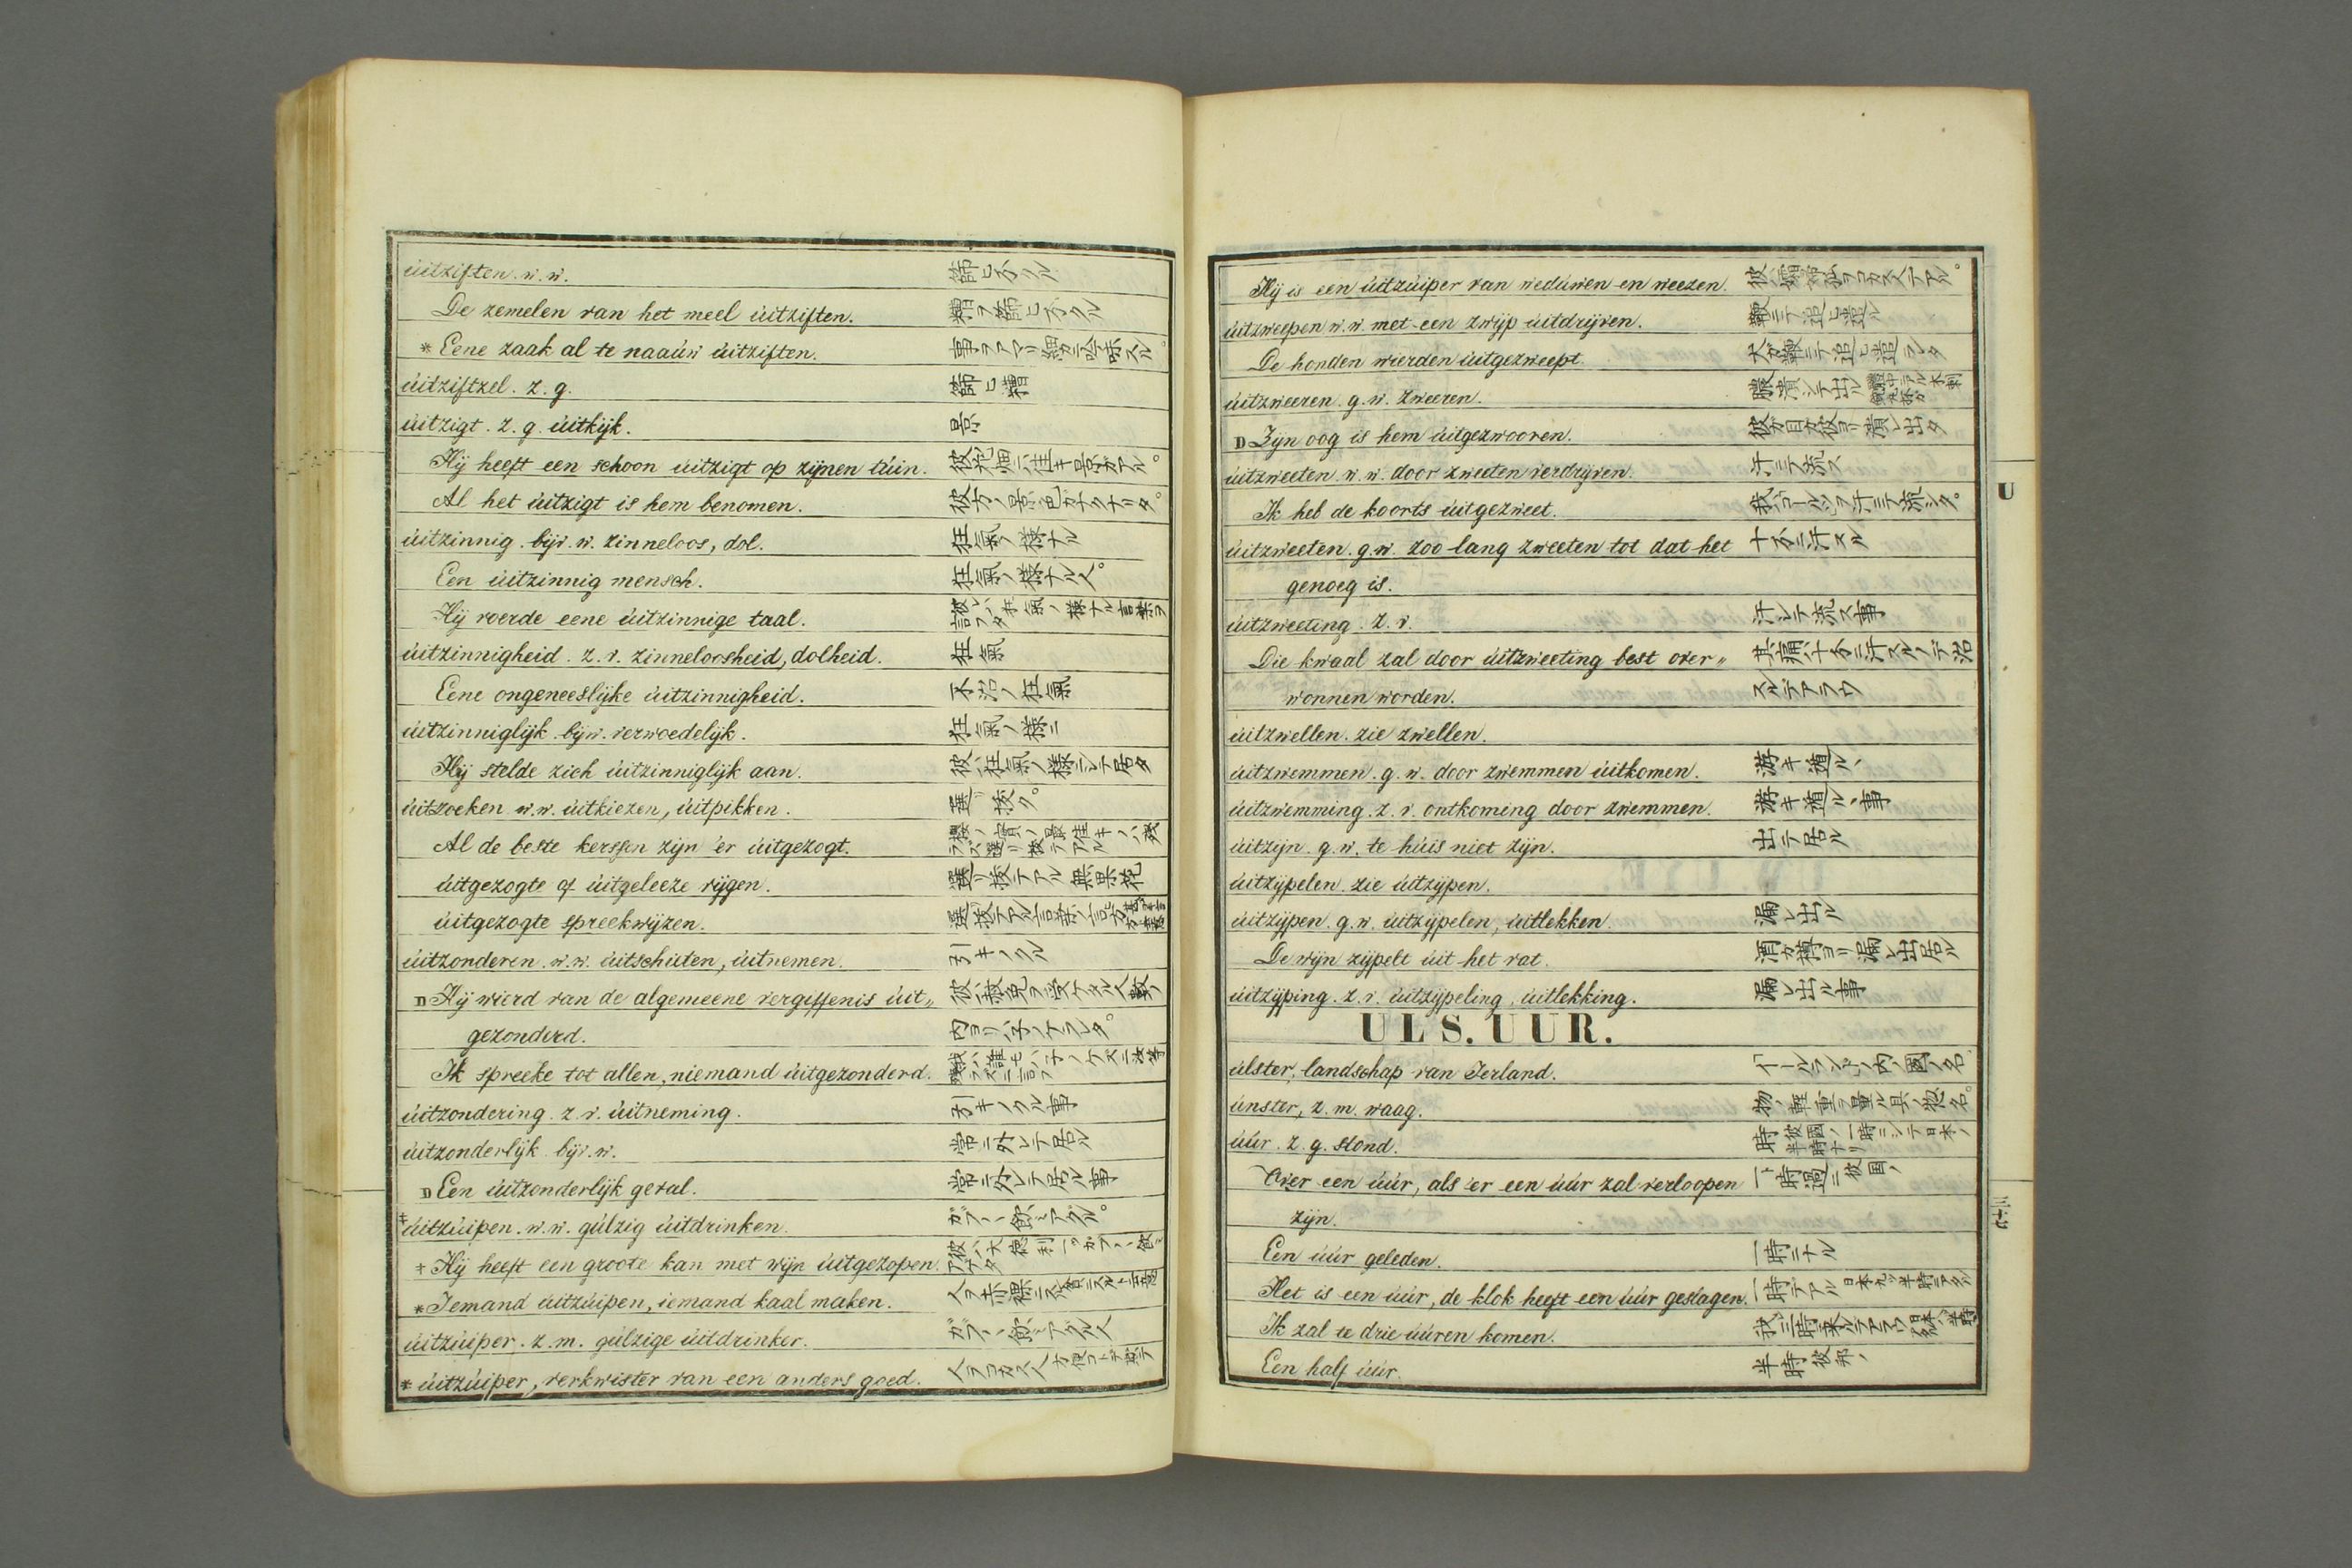 úitziften. w. w. 篩ヒ分クル
De zemelen van het meel úitziften. 糟ヲ篩ヒ分クル
* Eene zaak al te naaúw úitziften. 事ヲアマリ細ニ吟味スル。
úitziftzel. z. g. 篩ヒ糟
úitzigt. z. g. úitkijk. 景
Hij heeft een schoon úitzigt op zijnen túin. 彼花畑ニ佳キ景ガアル。
Al het úitzigt is hem benomen. 彼方ノ景色ガナクナリタ。
úitzinnig. bijv. w. zinneloos, dol. 狂氣ノ様ナル
Een úitzinnig mensch. 狂氣ノ様ナル人。
Hij voerde eene úitzinnige taal. 彼レハ狂氣ノ様ナル言葉ヲ言フタ
úitzinnigheid. z. v. zinneloosheid, dolheid. 狂氣
Eene ongeneeslijke úitzinnigheid. 不治ノ狂氣
úitzinniglijk. bijw. verwoedelijk. 狂氣ノ様ニ
Hij stelde zich úitzinniglijk aan. 彼ハ狂氣ノ様ニシテ居タ
úitzoeken. w. w. úitkiezen, úitpikken. 選リ抜ク。
Al de beste kerssen zijn 'er úitgezogt. 櫻ノ實ノ最佳キノハ残ラズ選リ抜テアル
úitgezogte of úitgeleeze vijgen. 選リ抜テアル無果花
úitgezogte spreekwijzen. 選リ抜テアル言葉ノ言ヒ方
úitzonderen. w. w. úitschieten, úitnemen. 引キノクル
D Hij wierd van de algemeene vergiffenis úit„ 彼ハ赦免ヲ受ケタル人數ノ
gezonderd. 内ヨリハ子ノケラレタ。
Ik spreeke tot allen, niemand úitgezonderd.
úitzondering. z. v. úitneming. 引キノクル事
úitzonderlijk. bijv. w. 常ニ外レテ居ル
D Een úitzonderlijk geval. 常ニ外レテ居ル事
* úitzúipen. w. w. gúlzig úitdrinken. ガブ〳〵飲ミアグル。
+ Hij heeft een groote kan met wijn úitgezopen. 彼ハ大徳利一ツガブ〳〵飲ミアゲタ
* Iemand úitzúipen, iemand kaal maken. 人ヲ赤裸ニスル
úitzúiper. z. m. gúlzige úitdrinker. ガブ〳〵飲ミアグル人
* úitzúiper, verkwister van een anders goed. 人ヲコカス人
Hij is een úitzúiper van wedúwen en weezen.
úitzweepen w. w. met een zwijp úitdrijven. 鞭ニテ追ヒ遣ル
De honden wierden úitgezweept. 犬ガ鞭ニテ追ヒ遣ラレタ
úitzweeren. g. w. zweeren. 膿潰シテ出ル
D Zijn oog is hem úitgezwooren. 彼ガ目ガ彼ヨリ潰レ出タ
úitzweeten. w. w. door zweeten verdrijven. 汗ニテ流ス
Ik heb de koorts úitgezweet. 我ハコールツヲ汗ニテ流シタ。
úitzweeten. g. w. zoo lang zweeten tot dat het 十分ニ汗スル
genoeg is.
úitzweeting. z. v. 汗シテ流ス事
Die kwaal zal door úitzweeting best over„ 其痛ハ十分ニ汗スルノデ治
wonnen worden. スルデアラウ
úitzwellen. zie zwellen.
úitzwemmen. g. w. door zwemmen úitkomen. 游キ遁ルヽ
úitzwemming. z. v. ontkoming door zwemmen. 游キ遁ルヽ事
úitzijn. g. w. te húis niet zijn. 出テ居ル
úitzijpelen. zie úitzijpen.
úitzijpen. g. w. úitzijpelen, úitlekken. 漏レ出ル
De wijn zijpelt úit het vat. 酒ガ樽ヨリ漏レ出居ル
úitzijping. z. v. úitzijpeling, úitlekking. 漏レ出ル事
ULS. UUR.
úlster, landschap van Ierland. イールランドノ内ノ國ノ名
únster, z. m. waag. 物ノ軽重ヲ量ル具ノ惣名。
úúr. z. g. stond. 時 彼國ノ一時ニシテ日本ノ半時ナリ
Over een úúr, als 'er een úúr zal verloopen 一ト時過ニ 彼国ノ
zijn.
Een úúr geleden. 一時ニナル
Het is een úúr, de klok heeft een úúr geslagen. 一時デアル 日本九ツ半時ニアタル
Ik zal te drie úúren komen. 我ハ三時ニ来ルデアラウ
Een half úúr. 半時 彼邦ノ
U